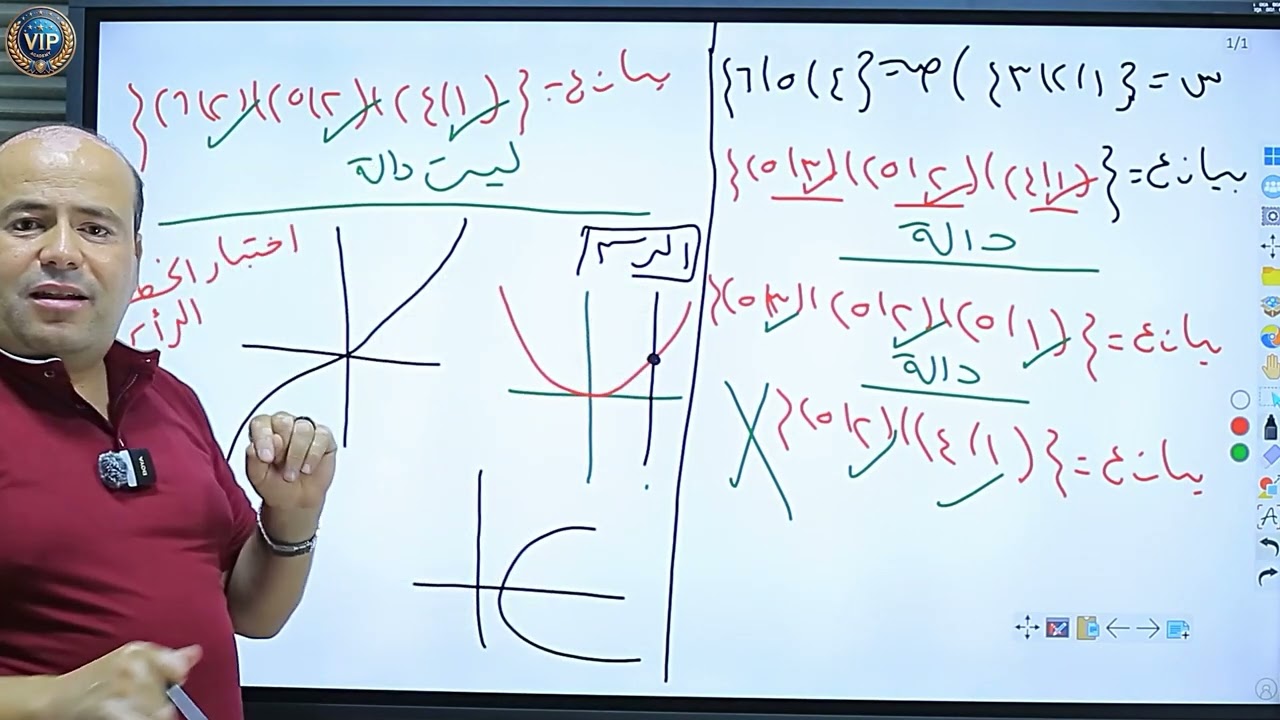 س = {١، ٢، ٣} ، ص = {٤، ٥، ٦}
بيان ع = {(١، ٤)، (٢، ٥)، (٣، ٥)}
دالة
بيان ع = {(١، ٥)، (٢، ٥)، (٣، ٥)}
دالة
بيان ع = {(١، ٤)، (٢، ٥)}
بيان ع = {(١، ٤)، (٢، ٥)، (٢، ٦)}
ليست دالة
اختبار الخط
الرأ
VIP
ACADEMY
1/1
BOYA